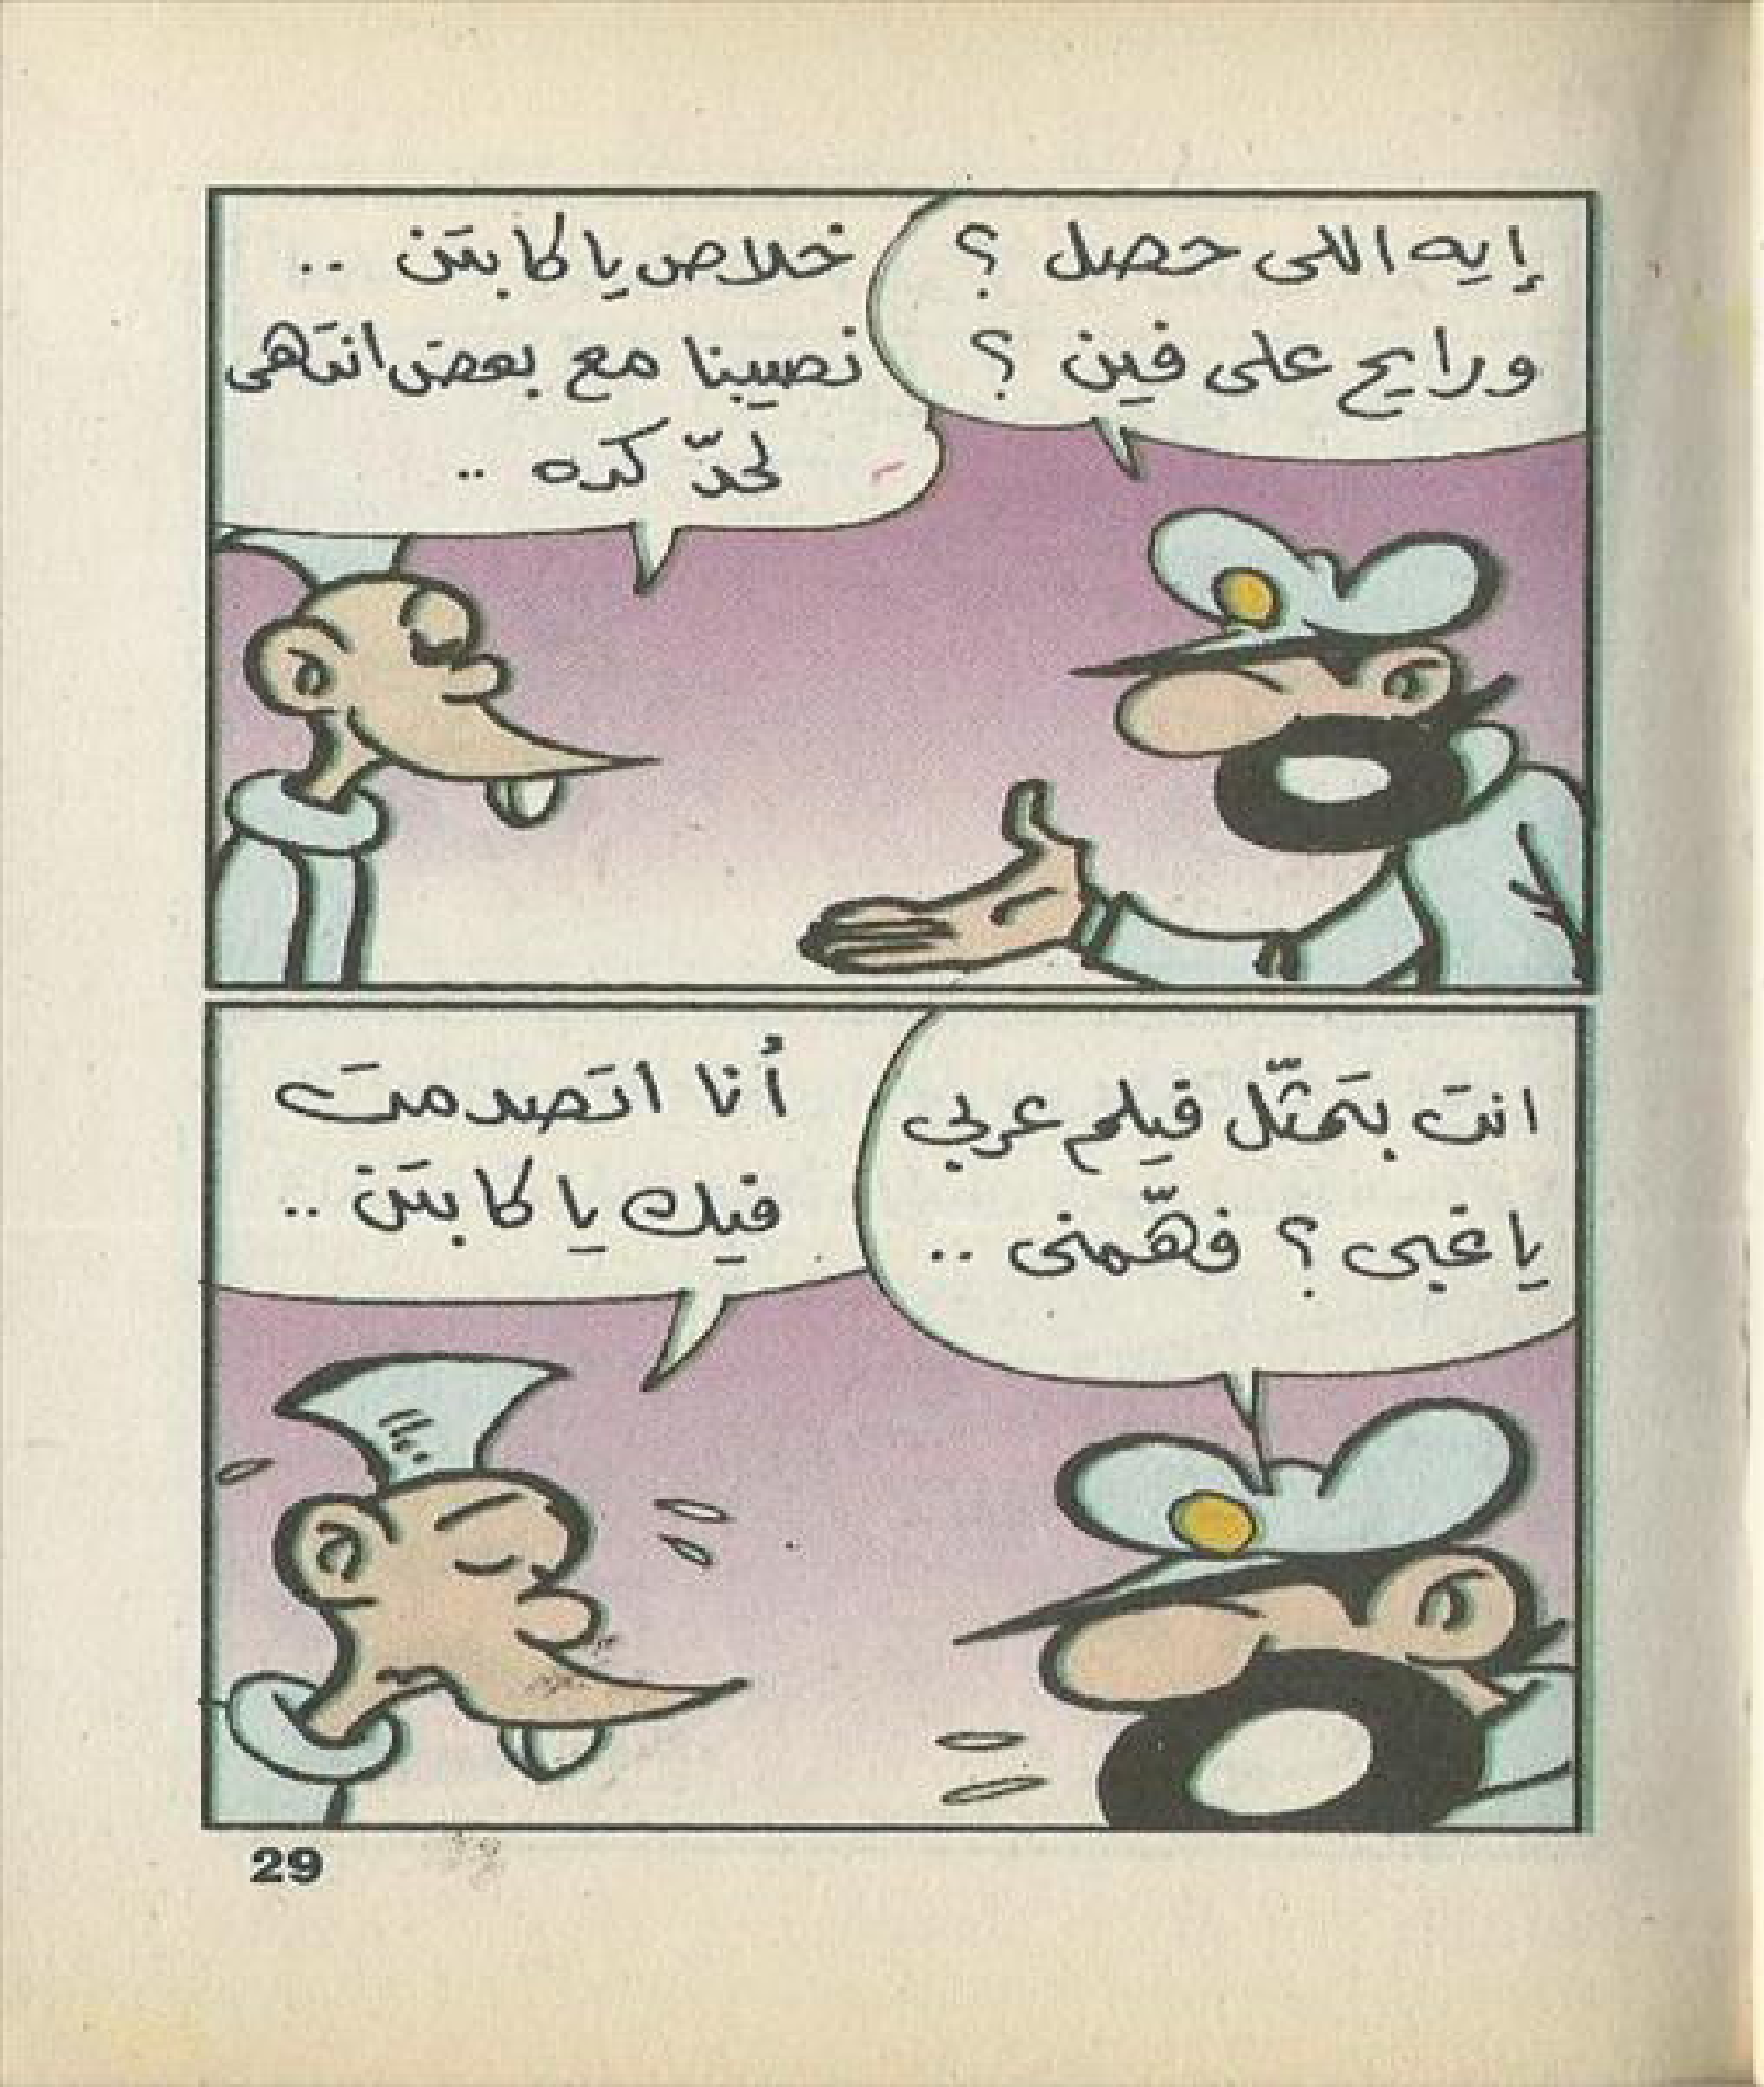 إيه اللى حصل ؟
ورايح على فين ؟
خلاص يا كابتن ..
نصيبنا مع بعض انتهى
لحدّ كده ..
انت بتمثّل فيلم عربي
يا غبى ؟ فهّمنى ..
أنا اتصدمت
فيك يا كابتن ..
29